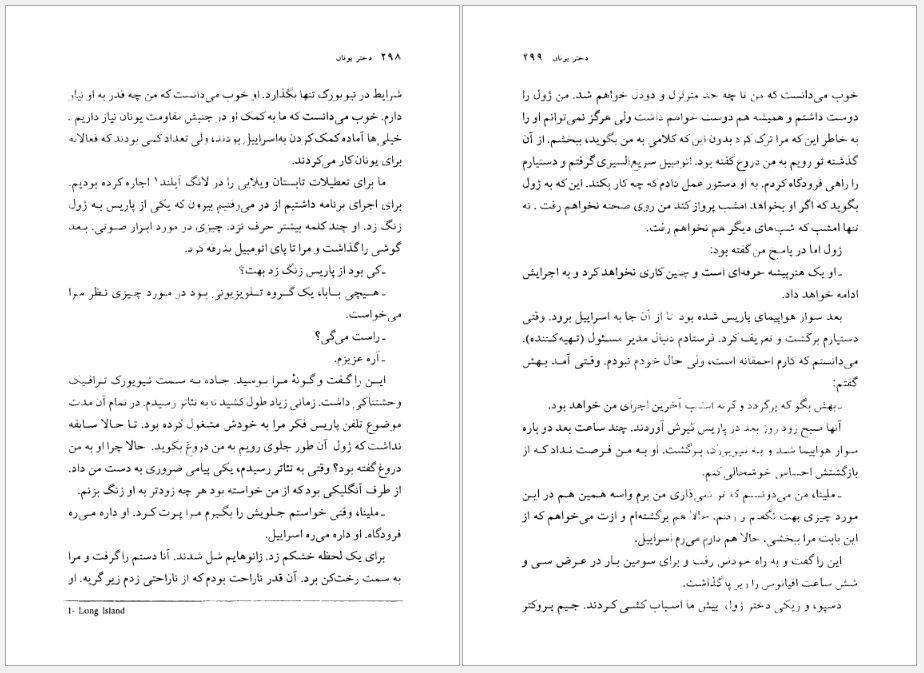 ۲۹۸ دختر یونان
شرایط در نیویورک تنها بگذارد. او خوب می‌دانست که من چه قدر به او نیاز
دارم. خوب می‌دانست که ما به کمک او در جنبش مقاومت یونان نیاز داریم .
خیلی‌ها آماده کمک کردن به اسراییل بودند، ولی تعداد کمی بودند که فعالانه
برای یونان کار می‌کردند.
ما برای تعطیلات تابستان ویلایی را در لانگ آیلند۱ اجاره کرده بودیم.
برای اجرای برنامه داشتیم از در می‌رفتیم بیرون که یکی از پاریس به ژول
زنگ زد. او چند کلمه بیشتر حرف نزد. چیزی در مورد ابزار صوتی. بعد
گوشی را گذاشت و مرا تا پای اتومبیل بدرقه کرد.
ـ کی بود از پاریس زنگ زد بهت؟
ـ هیچی بابا، یک گروه تلویزیونی بود در مورد چیزی نظر مرا
می‌خواست.
ـ راست می‌گی؟
ـ آره عزیزم.
این را گفت و گونهٔ مرا بوسید. جاده به سمت نیویورک ترافیک
وحشتناکی داشت. زمانی زیاد طول کشید تا به تئاتر رسیدم. در تمام آن مدت
موضوع تلفن پاریس فکر مرا به خودش مشغول کرده بود. تا حالا سابقه
نداشت که ژول آن طور جلوی رویم به من دروغ بگوید. حالا چرا او به من
دروغ گفته بود؟ وقتی به تئاتر رسیدم، یکی پیامی ضروری به دست من داد.
از طرف آنگلیکی بود که از من خواسته بود هر چه زودتر به او زنگ بزنم.
ـ ملینا، وقتی خواستم جلویش را بگیرم مرا پرت کرد. او داره می‌ره
فرودگاه. او داره می‌ره اسراییل.
برای یک لحظه خشکم زد. زانوهایم شل شدند. آنا دستم را گرفت و مرا
به سمت رخت‌کن برد. آن قدر ناراحت بودم که از ناراحتی زدم زیر گریه. او
1- Long Island
دختر یونان ۲۹۹
خوب می‌دانست که من تا چه حد متزلزل و دودل خواهم شد. من ژول را
دوست داشتم و همیشه هم دوست خواهم داشت ولی هرگز نمی‌توانم او را
به خاطر این که مرا ترک کرد بدون این که کلامی به من بگوید، ببخشم. از آن
گذشته تو رویم به من دروغ گفته بود. اتومبیل سریع‌السیری گرفتم و دستیارم
را راهی فرودگاه کردم. به او دستور عمل دادم که چه کار بکند. این که به ژول
بگوید که اگر او بخواهد امشب پرواز کند من روی صحنه نخواهم رفت . نه
تنها امشب که شب‌های دیگر هم نخواهم رفت.
ژول اما در پاسخ من گفته بود:
ـ او یک هنرپیشه حرفه‌ای است و چنین کاری نخواهد کرد و به اجرایش
ادامه خواهد داد.
بعد سوار هواپیمای پاریس شده بود تا از آن جا به اسراییل برود. وقتی
دستیارم برگشت و تعریف کرد. فرستادم دنبال مدیر مسئول (تهیه‌کننده).
می‌دانستم که کارم احمقانه است، ولی حال خودم نبودم. وقتی آمد بهش
گفتم:
ـ بهش بگو که برگردد و گرنه امشب آخرین اجرای من خواهد بود.
آنها صبح زود روز بعد در پاریس گیرش آوردند. چند ساعت بعد دو باره
سوار هواپیما شد و به نیویورک برگشت. او به من فرصت نداد که از
بازگشتش احساس خوشحالی کنم.
ـ ملینا، من می‌دونستم که تو نمی‌ذاری من برم واسه همین هم در این
مورد چیزی بهت نگفتم و رفتم. حالا هم برگشته‌ام و ازت می‌خواهم که از
این بابت مرا ببخشی. حالا هم دارم می‌رم اسراییل.
این را گفت و به راه خودش رفت و برای سومین بار در عرض سی و
شش ساعت اقیانوس را زیر پا گذاشت.
دسپو، و ریکی دختر ژول، پیش ما اسباب کشی کردند. جیم پروکتر